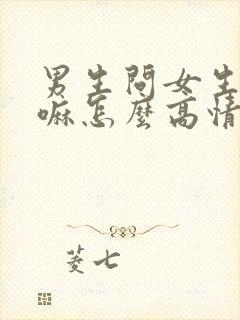 男生問女生
嘛怎麼高情
菱七